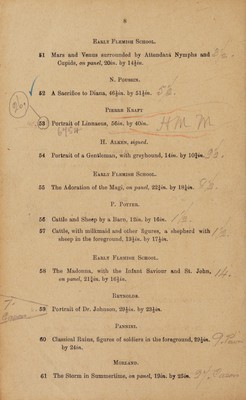 8
EARLY FLEMISH SCHOOL.
51 Mars and Venus surrounded by Attendant Nymphs and
Cupids, on panel, 20in. by 14½in.
N. POUSSIN.
52 A Sacrifice to Diana, 46½in. by 51½in.
PIERRE KRAFT
53 Portrait of Linnaeus, 56in. by 40in. H M M
H. ALKEN, signed.
54 Portrait of a Gentleman, with greyhound, 14in. by 10½in.
EARLY FLEMISH SCHOOL.
55 The Adoration of the Magi, on panel, 22½in. by 18½in.
P. POTTER.
56 Cattle and Sheep by a Barn, 12in. by 16in.
57 Cattle, with milkmaid and other figures, a shepherd with
sheep in the foreground, 13½in. by 17½in.
EARLY FLEMISH SCHOOL.
58 The Madonna, with the Infant Saviour and St. John,
on panel, 21½in. by 16½in.
REYNOLDS.
59 Portrait of Dr. Johnson, 29½in. by 23½in.
PANNINI.
60 Classical Ruins, figures of soldiers in the foreground, 29½in.
by 24in.
MORLAND.
61 The Storm in Summertime, on panel, 19in. by 25in.